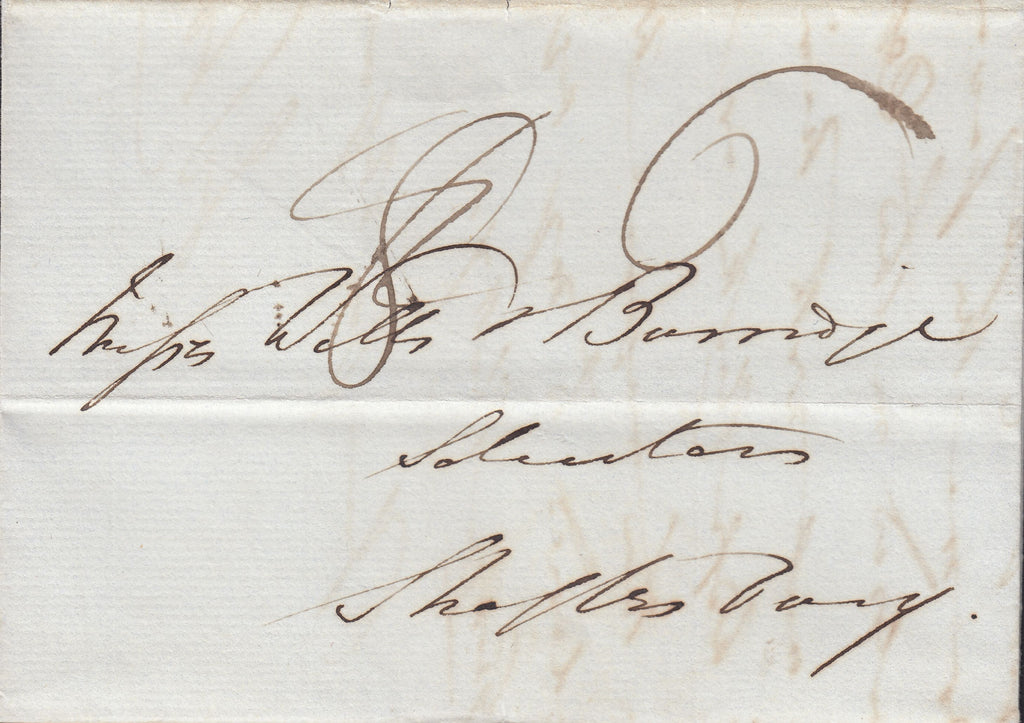 Messrs Wills & Burridge
Solicitors
Shaftesbury.